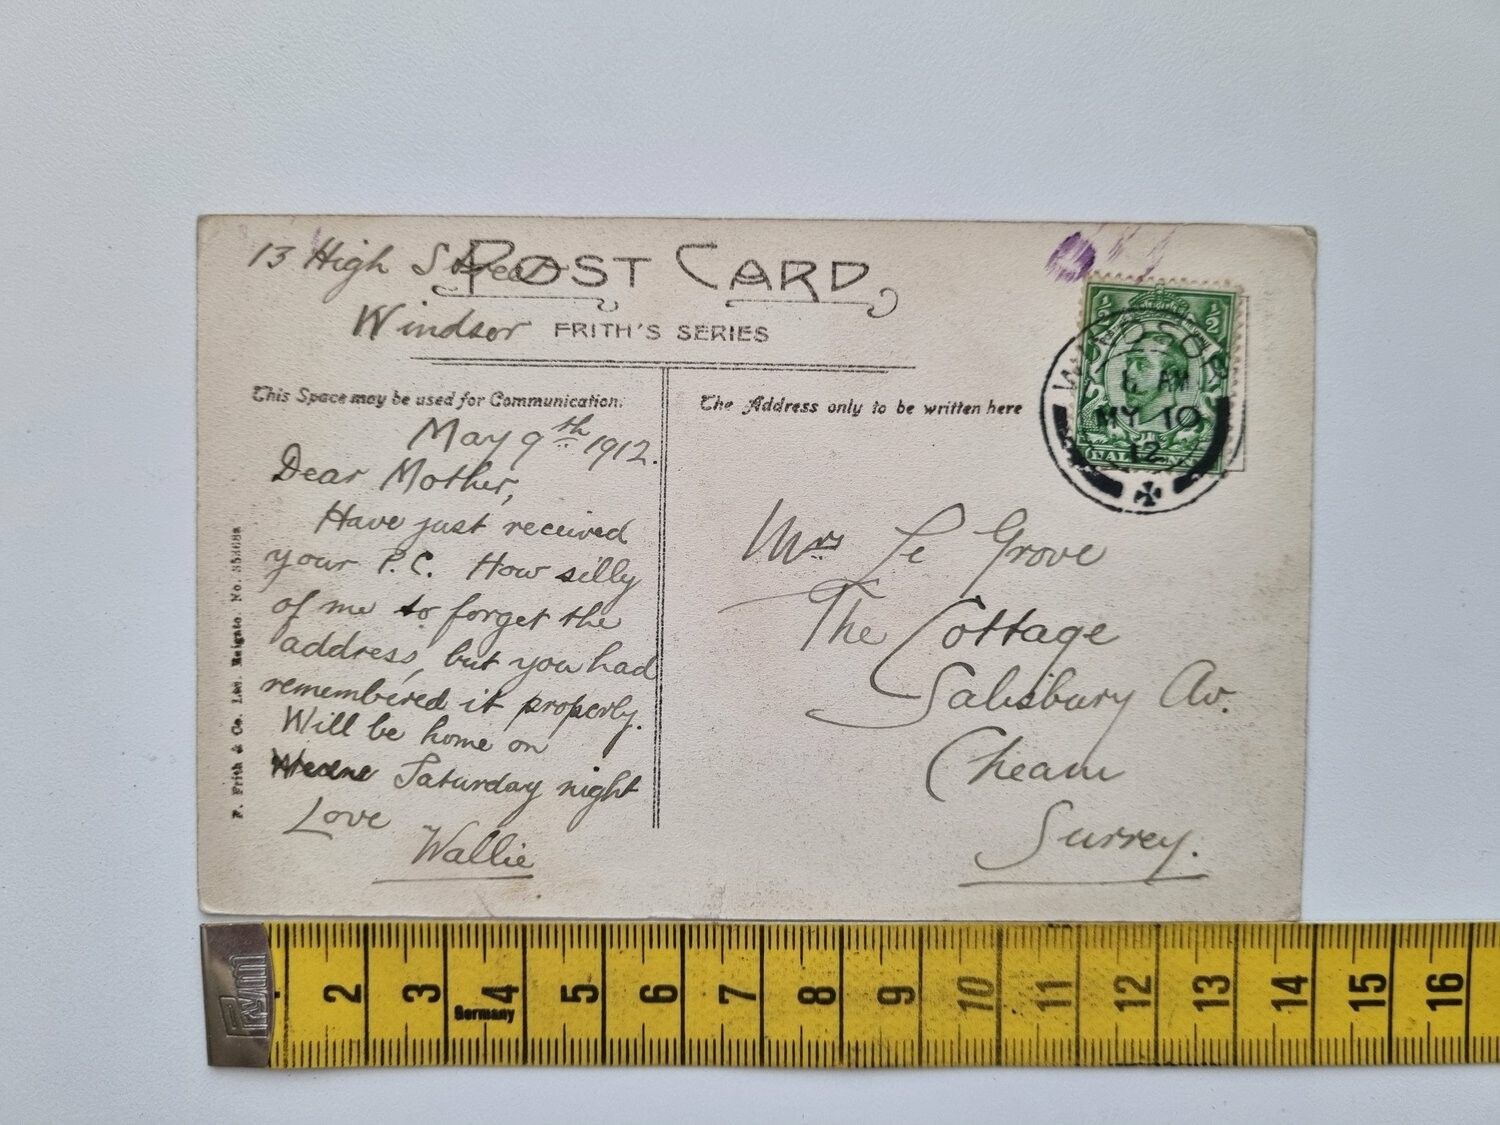 13 High Street
POST CARD
Windsor
FRITH'S SERIES
This Space may be used for Communication.
The Address only to be written here
May 9th 1912.
Dear Mother,
Have just received
your P.C. How silly
of me to forget the
address, but you had
remembered it properly.
Will be home on
Saturday night
Love
Wallie
Mrs Le Grove
The Cottage
Salisbury Av.
Cheam
Surrey.
F. Frith & Co. Ltd. Reigate. No.
½ ½
WINDSOR
AM
MY 10
12
Germany
2 3 4 5 6 7 8 9 10 11 12 13 14 15 16